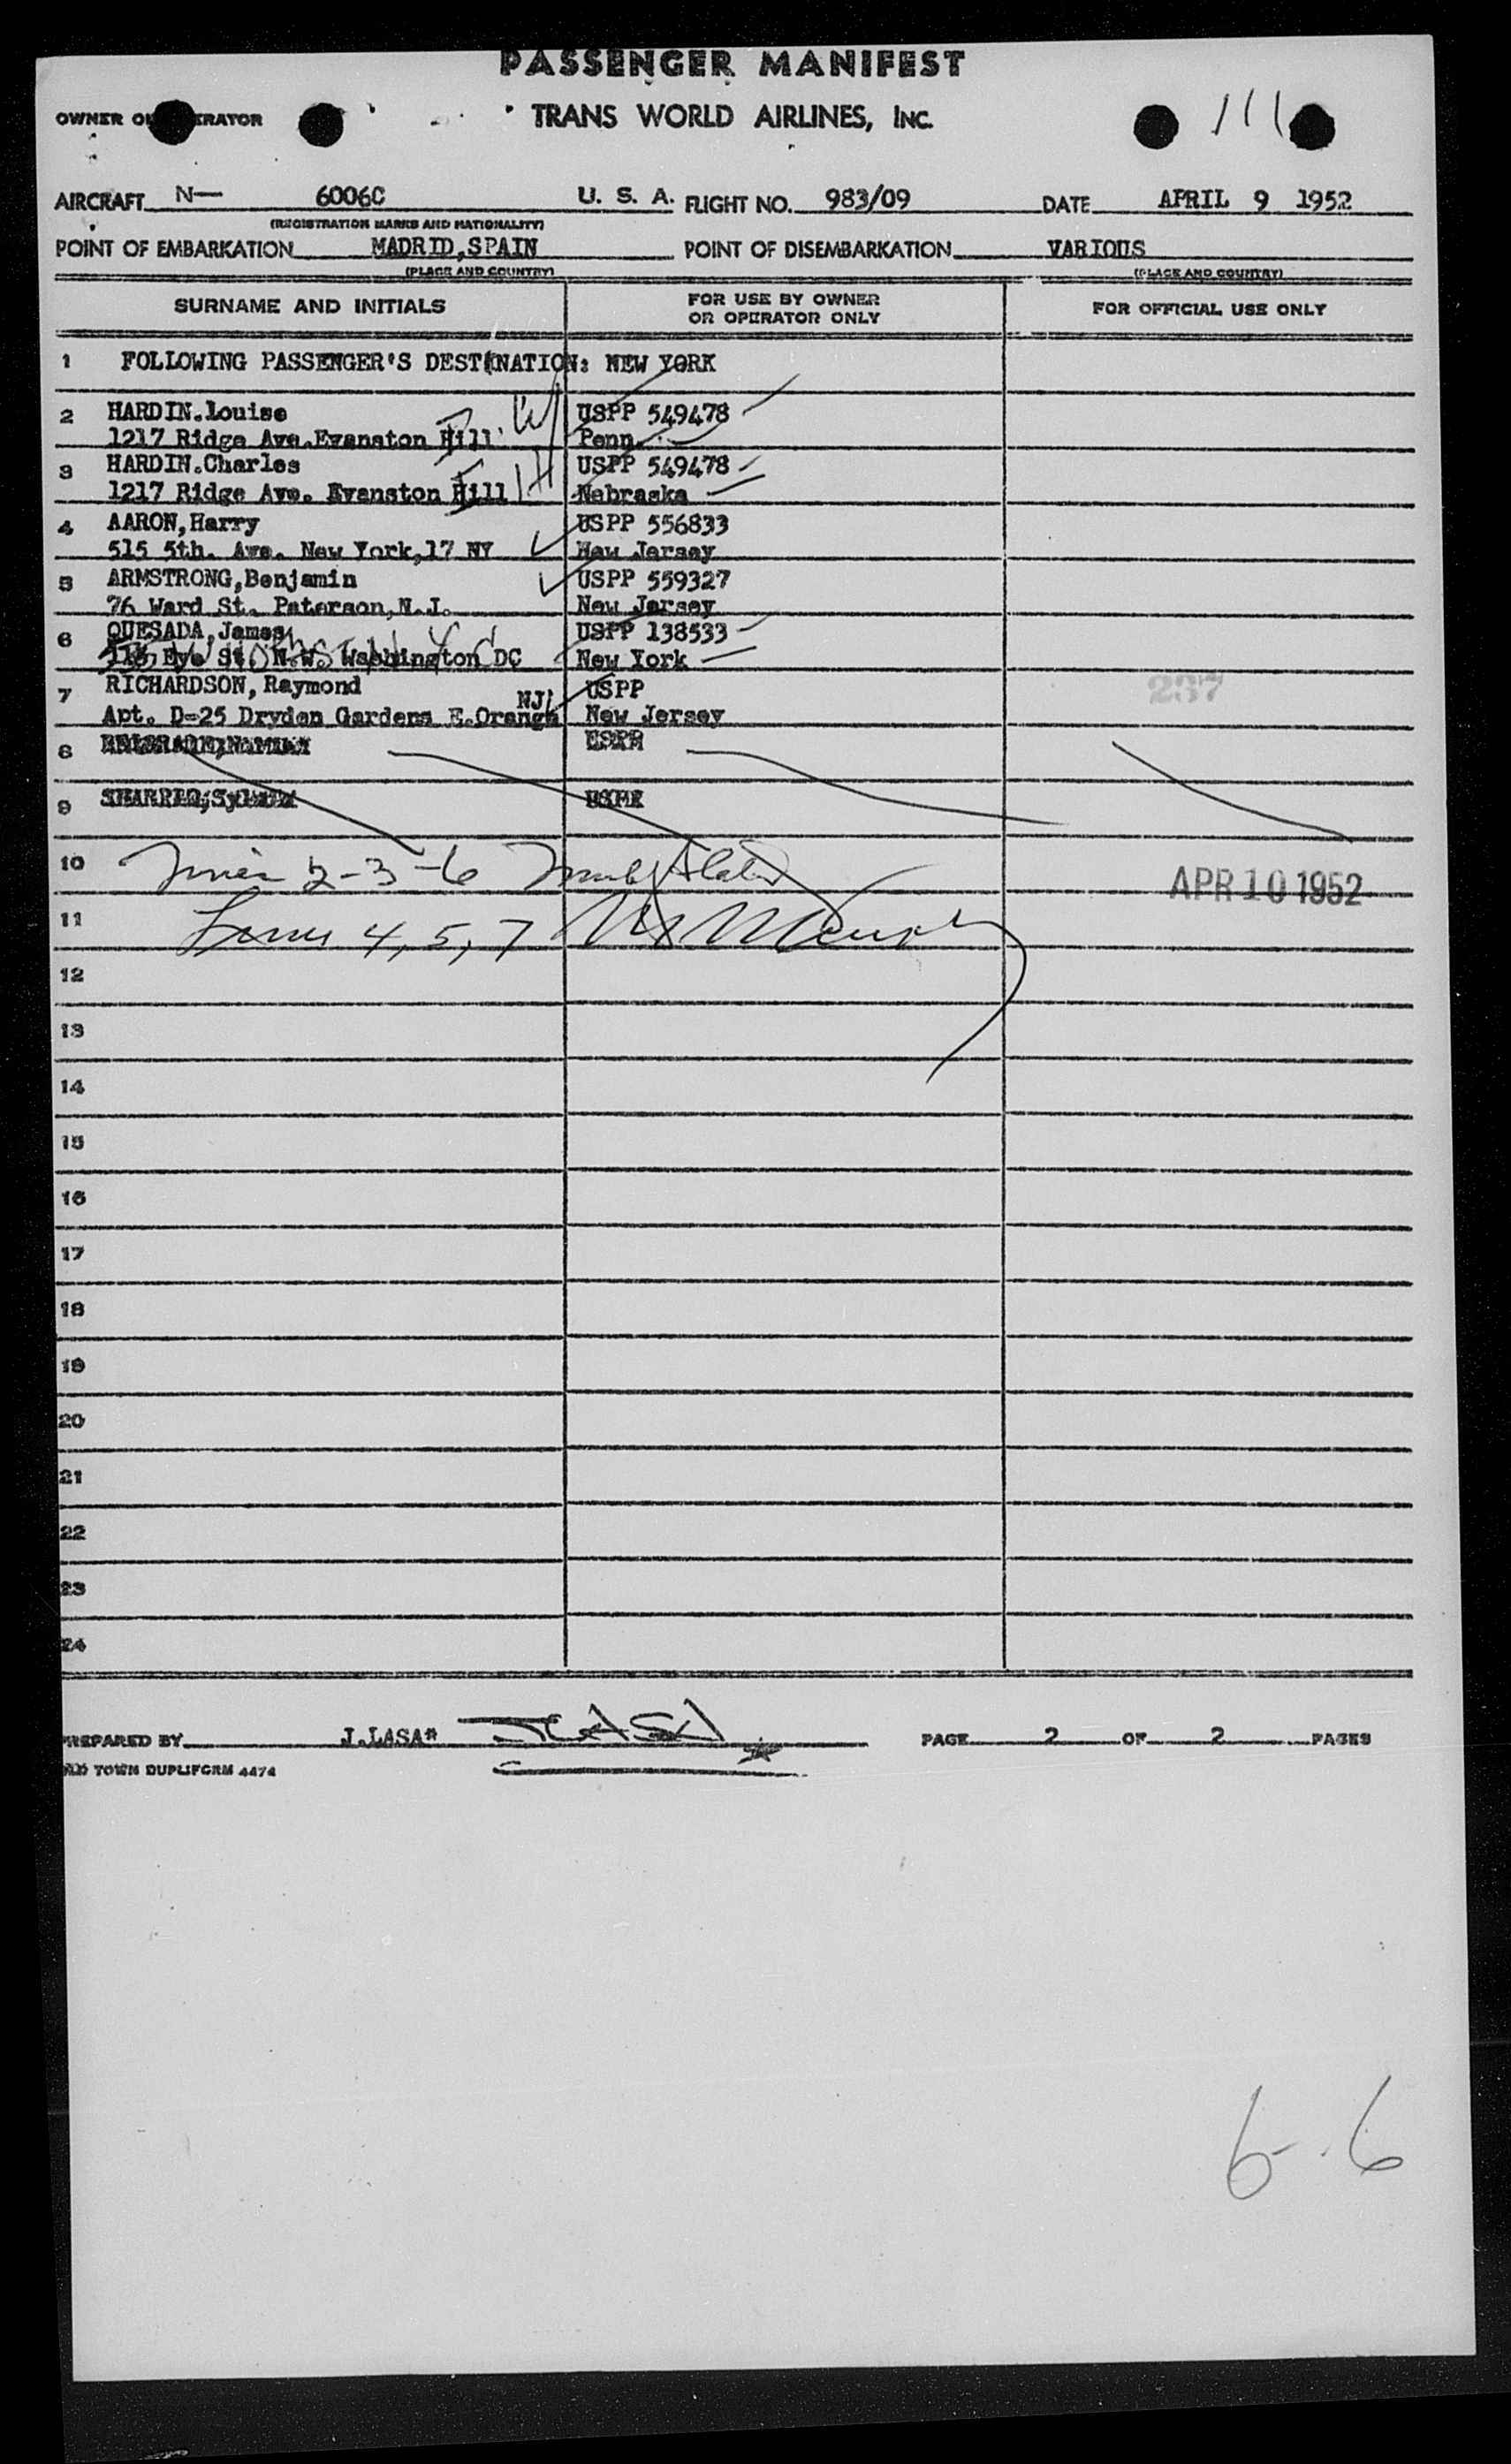 PASSENGER MANIFEST
OWNER OR OPERATOR
TRANS WORLD AIRLINES, INC.
111
AIRCRAFT N— 6006C U. S. A. FLIGHT NO. 983/09 DATE APRIL 9 1952
(REGISTRATION MARKS AND NATIONALITY)
POINT OF EMBARKATION MADRID,SPAIN POINT OF DISEMBARKATION VARIOUS
(PLACE AND COUNTRY) (PLACE AND COUNTRY)
SURNAME AND INITIALS FOR USE BY OWNER OR OPERATOR ONLY FOR OFFICIAL USE ONLY
1 FOLLOWING PASSENGER'S DESTINATION: NEW YORK
2 HARDIN.Louise USPP 549478
1217 Ridge Ave.Evanston Hill Penn.
3 HARDIN.Charles USPP 549478
1217 Ridge Ave. Evanston Hill Nebraska
4 AARON,Harry USPP 556833
515 5th. Ave. New York,17 NY New Jersey
5 ARMSTRONG,Benjamin USPP 559327
76 Ward St. Paterson,N.J. New Jersey
6 QUESADA,James USPP 138533
Eye St. N.W. Washington DC New York
7 RICHARDSON, Raymond USPP
NJ
Apt. D-25 Dryden Gardens E.Orange New Jersey
237
8
9
10 2-3-6
APR 10 1952
11 Lines 4, 5, 7
12
13
14
15
16
17
18
19
20
21
22
23
24
PREPARED BY J.LASA* JLASA PAGE 2 OF 2 PAGES
OLD TOWN DUPLIFORM 4474
6-6